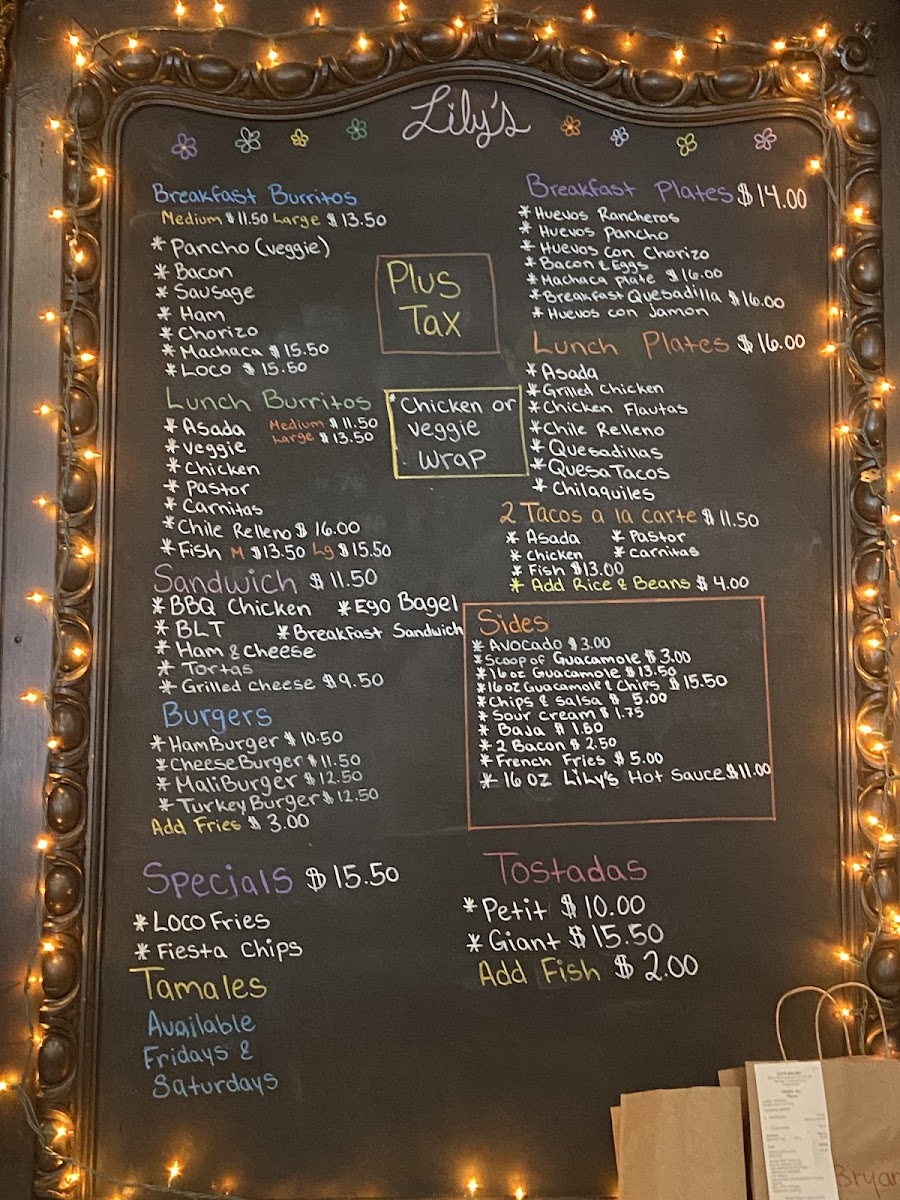 Lily's
Breakfast Burritos
Medium $11.50 Large $13.50
* Pancho (veggie)
* Bacon
* Sausage
* Ham
* Chorizo
* Machaca $15.50
* Loco $15.50
Plus
Tax
Lunch Burritos
Medium $11.50
Large $13.50
* Asada
* Veggie
* Chicken
* Pastor
* Carnitas
* Chile Relleno $16.00
* Fish M $13.50 Lg $15.50
* Chicken or
veggie
wrap
Sandwich $11.50
* BBQ Chicken * Ego Bagel
* BLT * Breakfast Sandwich
* Ham & Cheese
* Tortas
* Grilled cheese $9.50
Burgers
* HamBurger $10.50
* CheeseBurger $11.50
* MaliBurger $12.50
* Turkey Burger $12.50
Add Fries $3.00
Specials $15.50
* Loco Fries
* Fiesta Chips
Tamales
Available
Fridays &
Saturdays
Breakfast Plates $14.00
* Huevos Rancheros
* Huevos Pancho
* Huevos con Chorizo
* Bacon & Eggs
* Machaca Plate $16.00
* Breakfast Quesadilla $16.00
* Huevos con Jamon
Lunch Plates $16.00
* Asada
* Grilled Chicken
* Chicken Flautas
* Chile Relleno
* Quesadillas
* QuesaTacos
* Chilaquiles
2 Tacos a la carte $11.50
* Asada * Pastor
* Chicken * Carnitas
* Fish $13.00
* Add Rice & Beans $4.00
Sides
* Avocado $3.00
* Scoop of Guacamole $3.00
* 16oz Guacamole $13.50
* 16oz Guacamole & Chips $15.50
* Chips & Salsa $5.00
* Sour Cream $1.75
* Baja $1.80
* 2 Bacon $2.50
* French Fries $5.00
* 16 oz Lily's Hot Sauce $11.00
Tostadas
* Petit $10.00
* Giant $15.50
Add Fish $2.00
Bryan